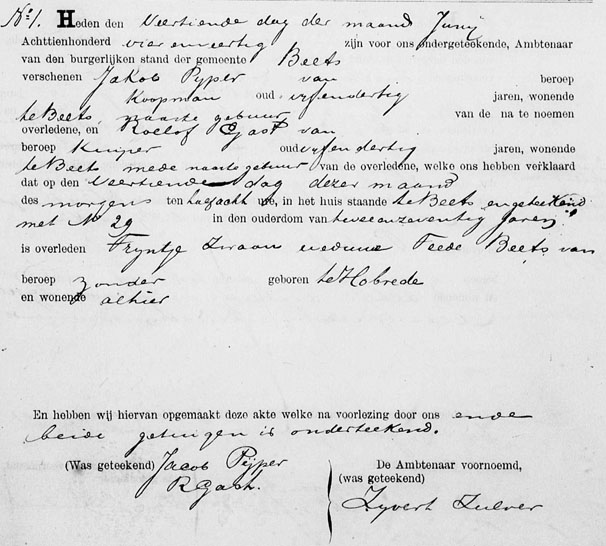 No 1. Heden den Veertiende dag der maand Junij
Achttienhonderd vier en veertig zijn voor ons ondergeteekende, Ambtenaar
van den burgerlijken stand der gemeente Beets
verschenen Jakob Pijper van beroep
Koopman oud vyfendertig jaren, wonende
te Beets, naaste gebuur van de na te noemen
overledene, en Roelof Gast van
beroep Kuiper oud vyfendertig jaren, wonende
te Beets mede naaste gebuur van de overledene, welke ons hebben verklaard
dat op den Veertiende dag dezer maand
des morgens ten half acht ure, in het huis staande te Beets, en geteekend
met No 29 in den ouderdom van twee en zeventig Jaren
is overleden Tryntje Zwaan weduwe Teede Beets van
beroep zonder geboren te Hobrede
en wonende alhier
En hebben wij hiervan opgemaakt deze akte welke na voorlezing door ons ende
beide getuigen is onderteekend.
(Was geteekend) Jacob Pijper
R Gast.
De Ambtenaar voornoemd,
(was geteekend)
Zyvert Zulver